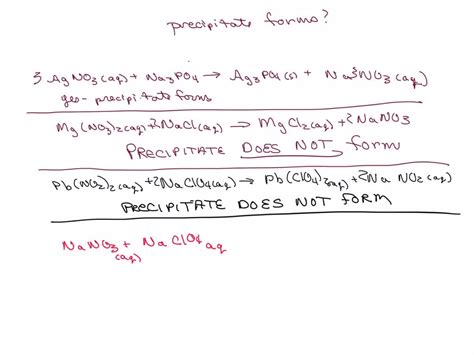 precipitate forms?
3 AgNO3(aq) + Na3PO4 → Ag3PO4(s) + Na3NO3(aq)
yes - precipitate forms
Mg(NO3)2(aq)+2NaCl(aq) → MgCl2(aq) + 2NaNO3
PRECIPITATE DOES NOT form
Pb(NO2)2(aq)+2NaClO4(aq) → Pb(ClO4)2(aq) + 2Na NO2(aq)
PRECIPITATE DOES NOT FORM
NaNO3 + NaClO4 aq
(aq)